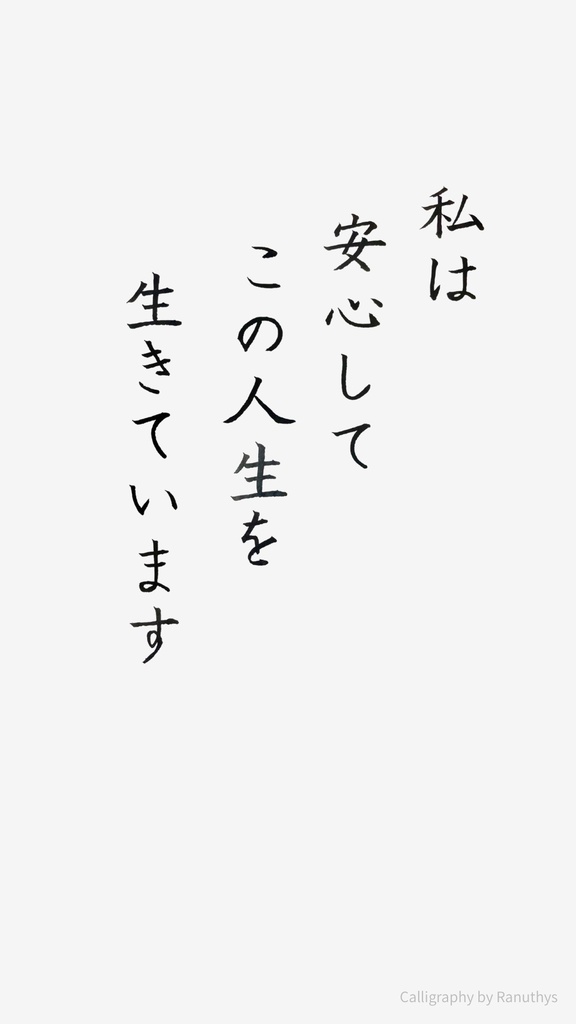 私は
安心して
この人生を
生きています
Calligraphy by Ranuthys